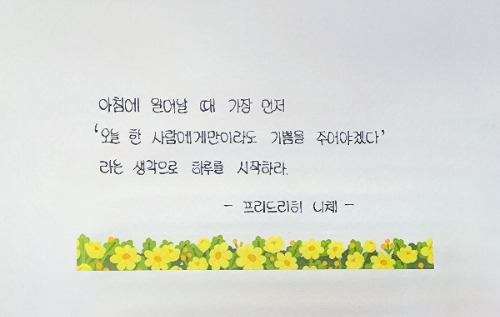 아침에 일어날 때 가장 먼저
'오늘 한 사람에게만이라도 기쁨을 주어야겠다'
라는 생각으로 하루를 시작하라.
- 프리드리히 니체 -